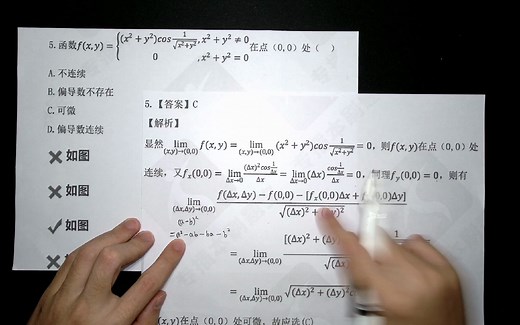 5. 函数f(x, y) = {(x² + y²)cos 1/√(x²+y²), x² + y² ≠ 0
0 , x² + y² = 0 在点（0, 0）处（ ）
A. 不连续
B. 偏导数不存在
C. 可微
D. 偏导数连续
❌ 如图
❌ 如图
✓ 如图
❌
5. 【答案】C
【解析】
显然 lim (x,y)→(0,0) f(x, y) = lim (x,y)→(0,0) (x² + y²)cos 1/√(x²+y²) = 0，则f(x, y)在点（0, 0）处
连续，又fₓ(0,0) = lim Δx→0 (Δx)²cos 1/Δx / Δx = lim Δx→0 (Δx) cos 1/Δx / Δx = 0，同理f_y(0,0) = 0，则有
lim (Δx,Δy)→(0,0) f(Δx, Δy) − f(0,0) − [fₓ(0,0)Δx + (0,0)Δy] / √((Δx)² + )²
(a-b)²
= a² - ab - ba - b²
= lim (Δx,Δy)→(0,0) [(Δx)² + (Δy) 1 / √(Δx)
= lim (Δx,Δy)→(0,0) √((Δx)² + (Δy)²)
(x, y)在点（0, 0）处可微，故应选(C)